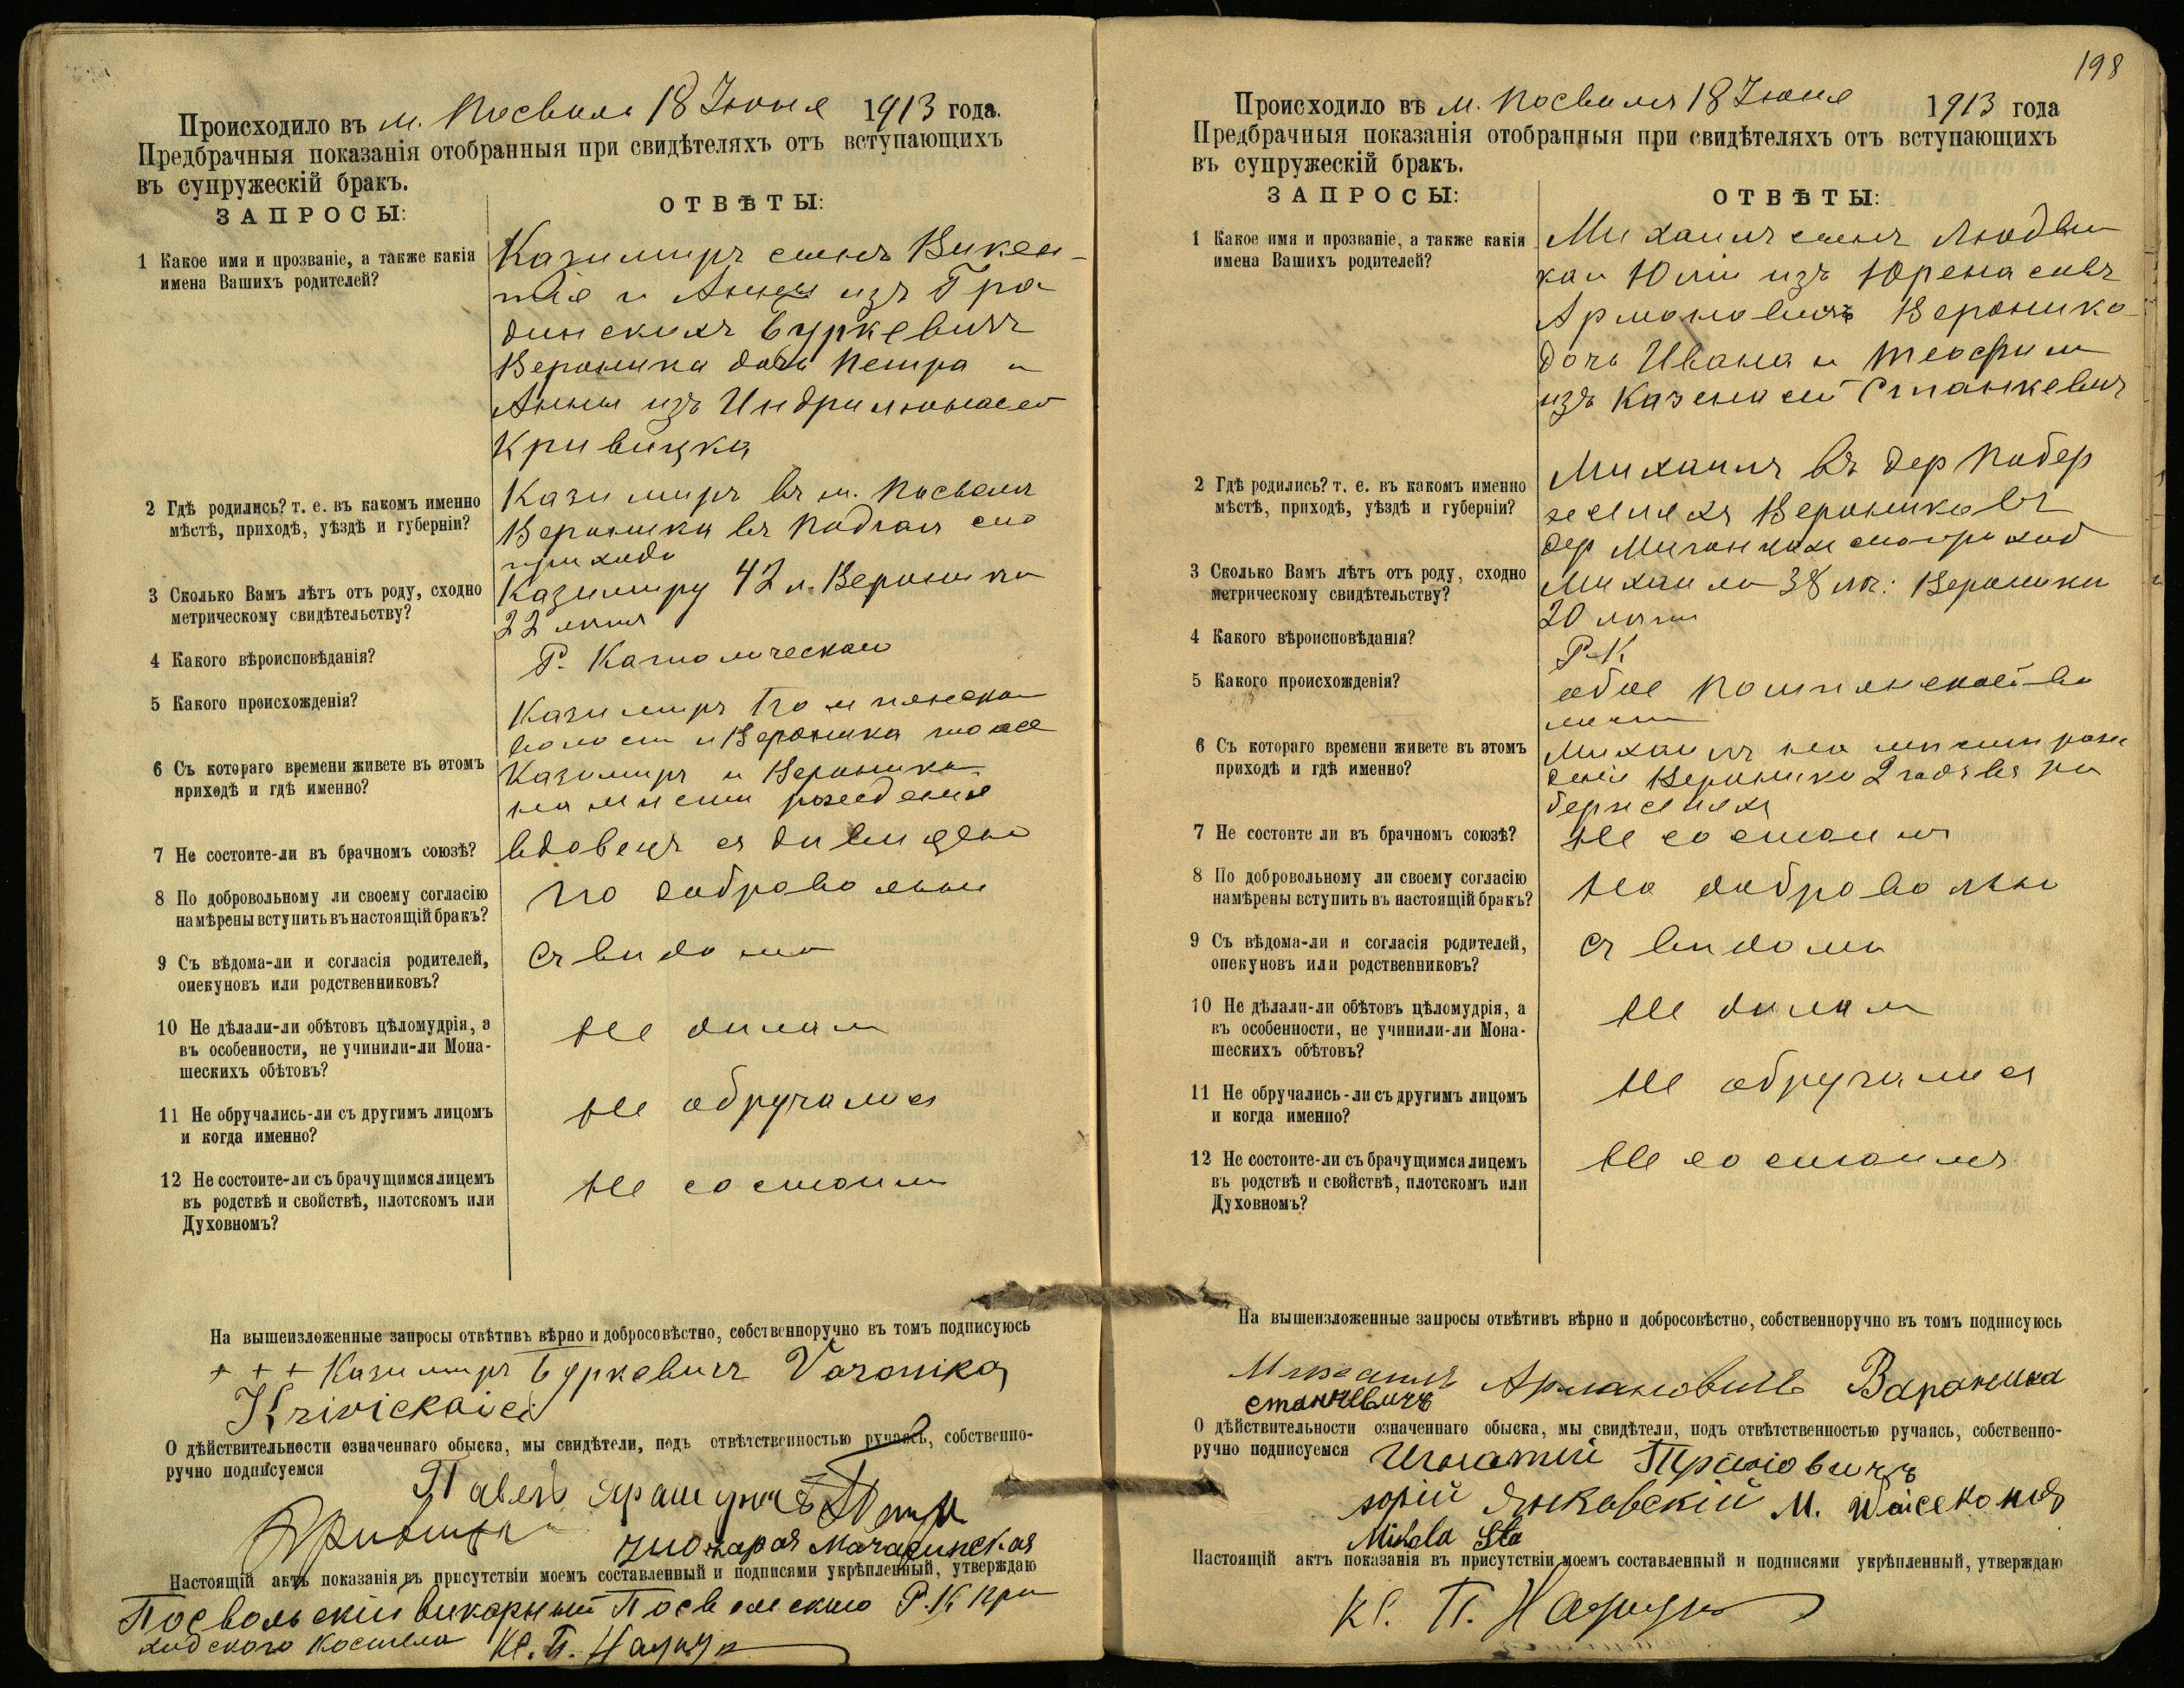 Происходило въ м. Посволь 18 Іюня 1913 года.
Предбрачныя показанія отобранныя при свидѣтеляхъ отъ вступающихъ
въ супружескій бракъ.
ЗАПРОСЫ:
ОТВѢТЫ:
1 Какое имя и прозваніе, а также какія
имена Вашихъ родителей?
Казимиръ сынъ Викен-
тія и Анны изъ Гра
динскихъ Буркевичъ
Вероника дочь Петра и
Анны изъ
Кривицка
2 Гдѣ родились? т. е. въ какомъ именно
мѣстѣ, приходѣ, уѣздѣ и губерніи?
Казимиръ въ м. Посволь
Вероника въ сио
прихода
3 Сколько Вамъ лѣтъ отъ роду, сходно
метрическому свидѣтельству?
Казимиру 42 л. Вероника
22 лѣтъ
4 Какого вѣроисповѣданія?
Р. Католическаго
5 Какого происхожденія?
Казимиръ
волости и Вероника тоже
6 Съ котораго времени живете въ этомъ
приходѣ и гдѣ именно?
Казимиръ и Вероника
на мисти рождения
7 Не состоите-ли въ брачномъ союзѣ?
вдовецъ съ дивицею
8 По добровольному ли своему согласію
намѣрены вступить въ настоящій бракъ?
по добровольни
9 Съ вѣдома-ли и согласія родителей,
опекуновъ или родственниковъ?
Съ видома
10 Не дѣлали-ли обѣтовъ цѣломудрія, а
въ особенности, не учинили-ли Мона-
шескихъ обѣтовъ?
Не дилали
11 Не обручались-ли съ другимъ лицомъ
и когда именно?
Не обручались
12 Не состоите-ли съ брачущимся лицемъ
въ родствѣ и свойствѣ, плотскомъ или
Духовномъ?
Не состоимъ
На вышеизложенные запросы отвѣтивъ вѣрно и добросовѣстно, собственноручно въ томъ подписуюсь
+ + + Казимиръ Буркевичъ Varonika
Krivickaicė
О дѣйствительности означеннаго обыска, мы свидѣтели, подъ отвѣтственностью ручаясь, собственно-
ручно подписуемся
Павелъ
Настоящій актъ показанія въ присутствіи моемъ составленный и подписями укрѣпленный, утверждаю
Посвольскій викарный Посвольскаго Р. К при
ходского костела Кс. П.
198
Происходило въ м. Посволя 18 Іюня 1913 года
Предбрачныя показанія отобранныя при свидѣтеляхъ отъ вступающихъ
въ супружескій бракъ.
ЗАПРОСЫ:
ОТВѢТЫ:
1 Какое имя и прозваніе, а также какія
имена Вашихъ родителей?
Михаилъ сынъ Людви
ка и Юліи изъ
Армановичъ Вероника
дочь Ивана и Теофили
изъ Станкевичъ
2 Гдѣ родились? т. е. въ какомъ именно
мѣстѣ, приходѣ, уѣздѣ и губерніи?
Михаилъ въ дер Побер
желяхъ Вероника въ
дер
3 Сколько Вамъ лѣтъ отъ роду, сходно
метрическому свидѣтельству?
Михаилъ 38 лѣт: Вероники
20 лѣтъ
4 Какого вѣроисповѣданія?
Р-К
5 Какого происхожденія?
обое
6 Съ котораго времени живете въ этомъ
приходѣ и гдѣ именно?
Михаилъ на мисти рож
деніи Вероника 2 года въ По
бержеляхъ
7 Не состоите ли въ брачномъ союзѣ?
Не состоимъ
8 По добровольному ли своему согласію
намѣрены вступить въ настоящій бракъ?
по добровольно
9 Съ вѣдома-ли и согласія родителей,
опекуновъ или родственниковъ?
Съ видома
10 Не дѣлали-ли обѣтовъ цѣломудрія, а
въ особенности, не учинили-ли Мона-
шескихъ обѣтовъ?
Не дилали
11 Не обручались-ли съ другимъ лицомъ
и когда именно?
Не обручались
12 Не состоите-ли съ брачущимся лицемъ
въ родствѣ и свойствѣ, плотскомъ или
Духовномъ?
Не состоимъ
На вышеизложенные запросы отвѣтивъ вѣрно и добросовѣстно, собственноручно въ томъ подписуюсь
Михаилъ Армановичъ Вараника
Станкевичъ
О дѣйствительности означеннаго обыска, мы свидѣтели, подъ отвѣтственностью ручаясь, собственно-
ручно подписуемся Игнатій
Янковскій М.
Настоящій актъ показанія въ присутствіи моемъ составленный и подписями укрѣпленный, утверждаю
Кс. П.